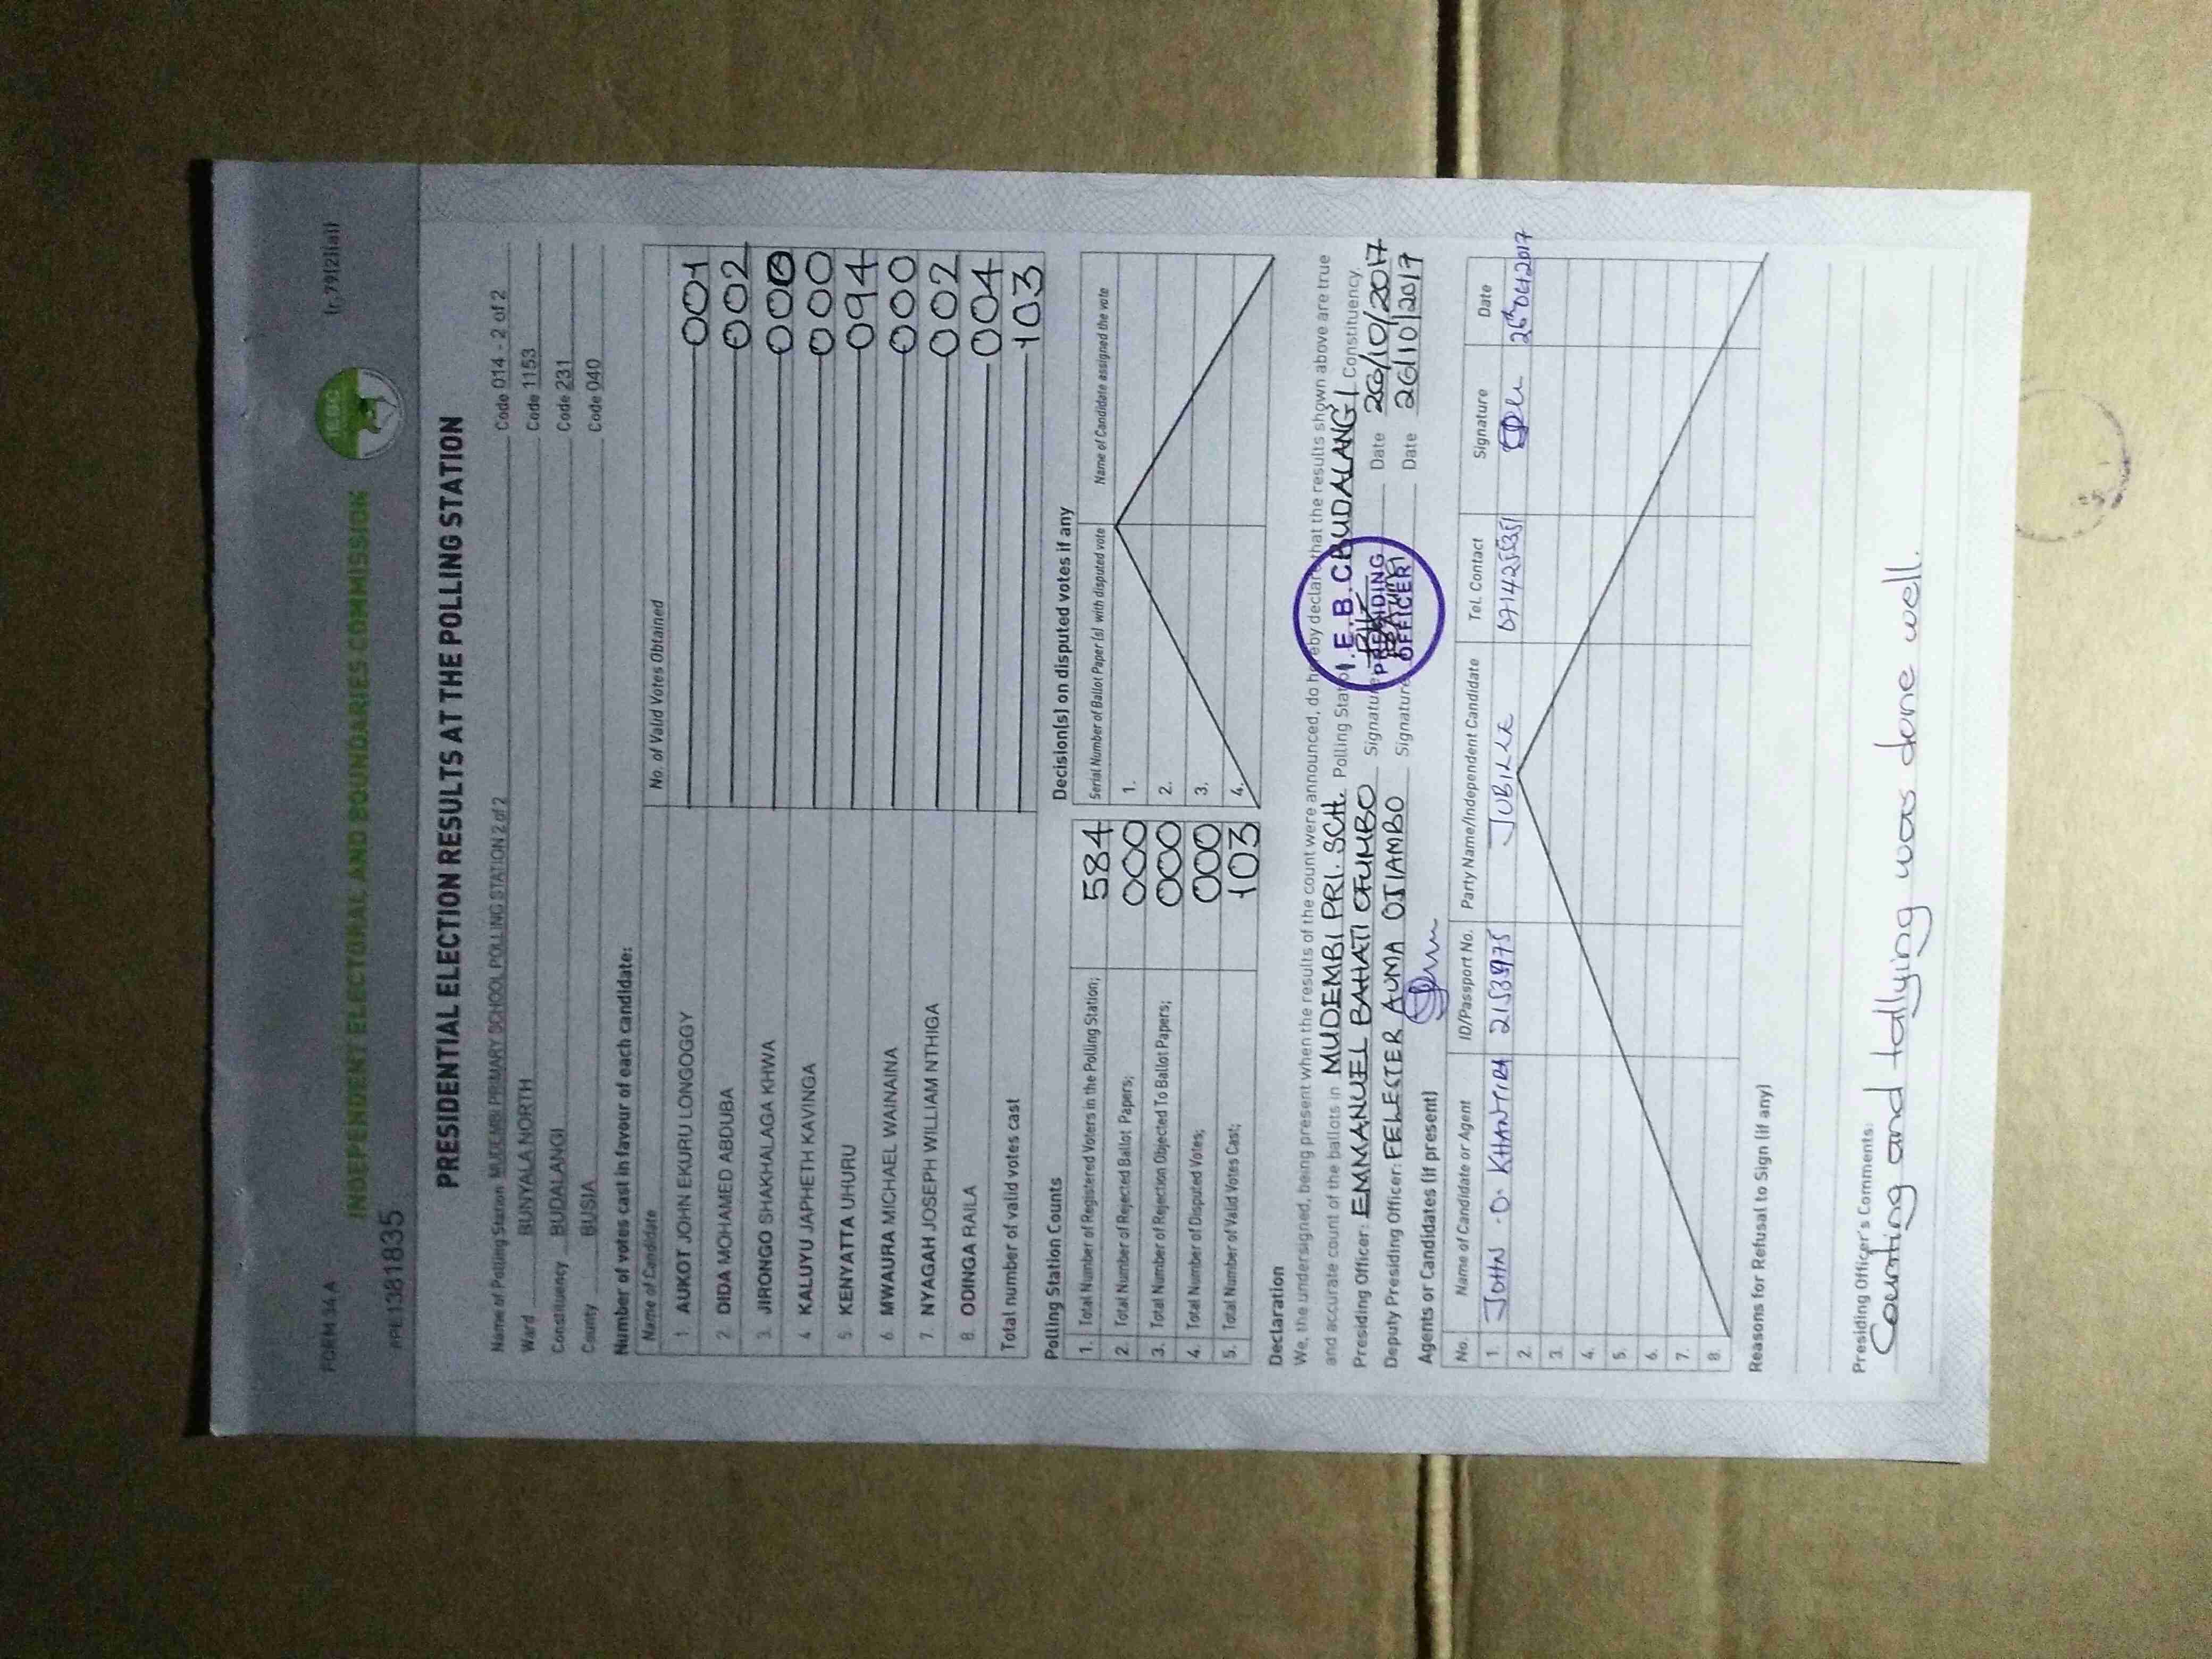 FORM 34 A (r. 79(2)(a))
INDEPENDENT ELECTORAL AND BOUNDARIES COMMISSION
IEBC
APE1381835
PRESIDENTIAL ELECTION RESULTS AT THE POLLING STATION
Name of Polling Station MUDEMBI PRIMARY SCHOOL POLLING STATION 2 of 2 Code 014 - 2 of 2
Ward BUNYALA NORTH Code 1153
Constituency BUDALANGI Code 231
County BUSIA Code 040
Number of votes cast in favour of each candidate:
Name of Candidate No. of Valid Votes Obtained
1. AUKOT JOHN EKURU LONGOGGY 001
2. DIDA MOHAMED ABDUBA 002
3. JIRONGO SHAKHALAGA KHWA 000
4. KALUYU JAPHETH KAVINGA 000
5. KENYATTA UHURU 094
6. MWAURA MICHAEL WAINAINA 000
7. NYAGAH JOSEPH WILLIAM NTHIGA 002
8. ODINGA RAILA 004
Total number of valid votes cast 103
Polling Station Counts
1. Total Number of Registered Voters in the Polling Station; 584
2. Total Number of Rejected Ballot Papers; 000
3. Total Number of Rejection Objected To Ballot Papers; 000
4. Total Number of Disputed Votes; 000
5. Total Number of Valid Votes Cast; 103
Decision(s) on disputed votes if any
Serial Number of Ballot Paper (s) with disputed vote Name of Candidate assigned the vote
1.
2.
3.
4.
Declaration
We, the undersigned, being present when the results of the count were announced, do hereby declare that the results shown above are true
and accurate count of the ballots in MUDEMBI PRI. SCH. Polling Station BUDALANGI Constituency.
Presiding Officer: EMMANUEL BAHATI OFUMBO Signature Date 26/10/2017
Deputy Presiding Officer: FELESTER AUMA OJIAMBO Signature Date 26/10/2017
I.E.B.C
PRESIDING
OFFICER
Agents or Candidates (if present)
No. Name of Candidate or Agent ID/Passport No. Party Name/Independent Candidate Tel. Contact Signature Date
1. JOHN O. 2153975 JUBILEE 26th Oct 2017
2.
3.
4.
5.
6.
7.
8.
Reasons for Refusal to Sign (if any)
Presiding Officer's Comments:
Counting and tallying was done well.